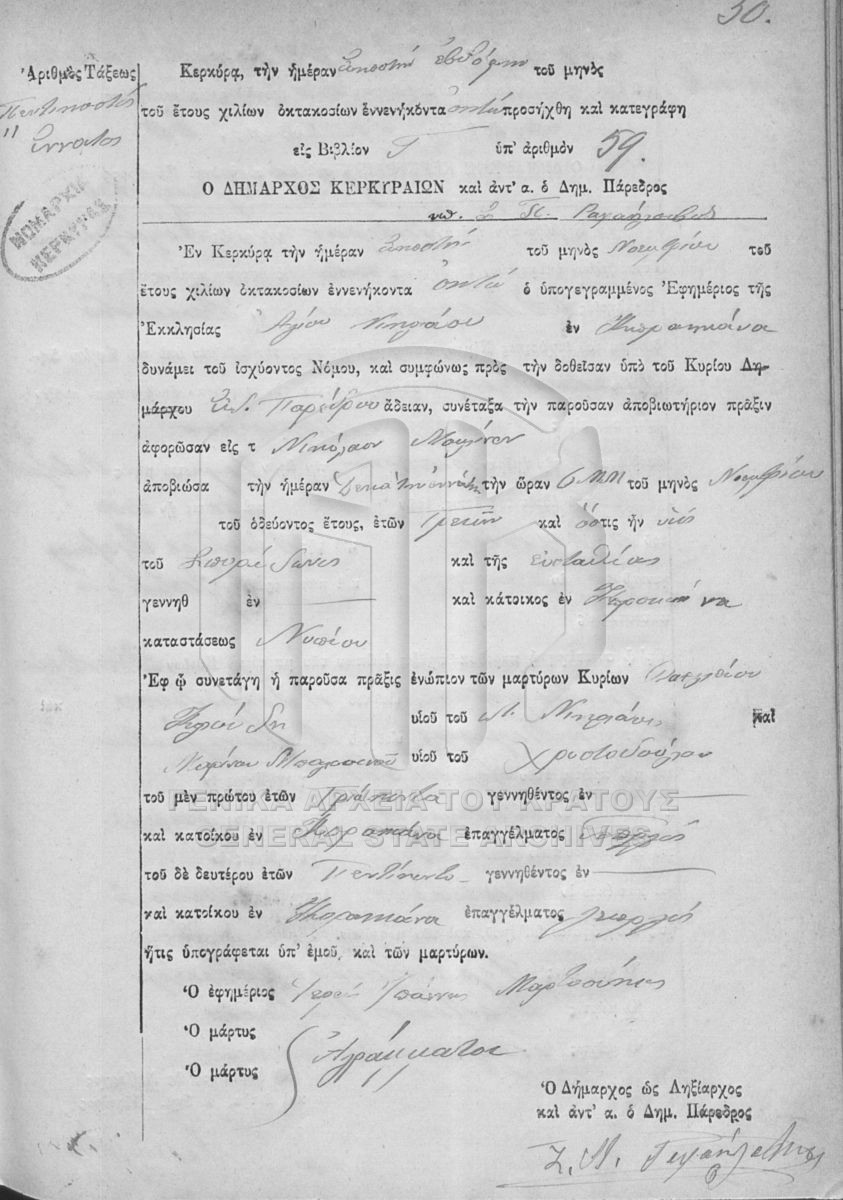 50.
Ἀριθμὸς Τάξεως
Πεντηκοστός
Ἔννατος
ΝΟΜΑΡΧΙΑ
ΚΕΡΚΥΡΑΣ
Κερκύρᾳ, τὴν ἡμέραν Εἰκοστὴν ἑβδόμην τοῦ μηνὸς
τοῦ ἔτους χιλίων ὀκτακοσίων ἐννενήκοντα ὀκτὼ προσήχθη καὶ κατεγράφη
εἰς Βιβλίον Γ ὑπ' ἀριθμὸν 59.
Ο ΔΗΜΑΡΧΟΣ ΚΕΡΚΥΡΑΙΩΝ καὶ ἀντ' α. ὁ Δημ. Πάρεδρος
Ἐν Κερκύρᾳ τὴν ἡμέραν Εἰκοστὴν τοῦ μηνὸς Νοεμβρίου τοῦ
ἔτους χιλίων ὀκτακοσίων ἐννενήκοντα ὀκτὼ ὁ ὑπογεγραμμένος Ἐφημέριος τῆς
Ἐκκλησίας Ἁγίου Νικολάου ἐν Κορακιάνα
δυνάμει τοῦ ἰσχύοντος Νόμου, καὶ συμφώνως πρὸς τὴν δοθεῖσαν ὑπὸ τοῦ Κυρίου Δη-
μάρχου Εἰδ. Παρέδρου ἄδειαν, συνέταξα τὴν παροῦσαν ἀποβιωτήριον πρᾶξιν
ἀφορῶσαν εἰς τ Νικόλαον
ἀποβιώσα τὴν ἡμέραν Δεκάτην ἐννάτην τὴν ὥραν 6 ΜΜ τοῦ μηνὸς Νοεμβρίου
τοῦ ὁδεύοντος ἔτους, ἐτῶν Τριῶν καὶ ὅστις ἦν υἱός
τοῦ Σπυρίδωνος καὶ τῆς Εὐσταθίας
γεννηθ ἐν καὶ κάτοικος ἐν Κορακιάνα
καταστάσεως Νηπίου
Ἐφ ᾧ συνετάγη ἡ παροῦσα πρᾶξις ἐνώπιον τῶν μαρτύρων Κυρίων
υἱοῦ τοῦ καὶ
υἱοῦ τοῦ Χριστοδούλου
τοῦ μὲν πρώτου ἐτῶν Τριάκοντα γεννηθέντος ἐν
καὶ κατοίκου ἐν Κορακιάνα ἐπαγγέλματος Γεωργός
τοῦ δὲ δευτέρου ἐτῶν Πεντήκοντα γεννηθέντος ἐν
καὶ κατοίκου ἐν Κορακιάνα ἐπαγγέλματος Γεωργός
ἥτις ὑπογράφεται ὑπ' ἐμοῦ, καὶ τῶν μαρτύρων.
Ὁ ἐφημέριος Ἱερεύς Ἰωάννης
Ὁ μάρτυς
Ἀγράμματοι
Ὁ μάρτυς
Ὁ Δήμαρχος ὡς Ληξίαρχος
καὶ ἀντ' α. ὁ Δημ. Πάρεδρος
ΓΕΝΙΚΑ ΑΡΧΕΙΑ ΤΟΥ ΚΡΑΤΟΥΣ
GENERAL STATE ARCHIVES